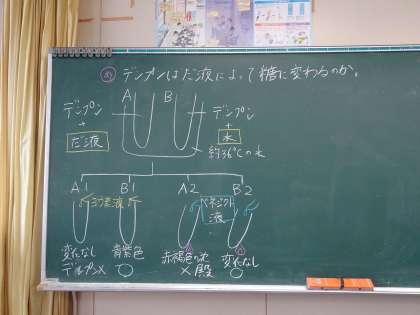 め デンプンはだ液によって糖に変わるのか。
A B
デンプン
+
だ液
デンプン
+
水
約36℃の水
A1 B1 A2 B2
ヨウ素液
ベネジクト
液
変化なし
デンプン×
青紫色
○
赤褐色の沈
×殿
変化なし
○